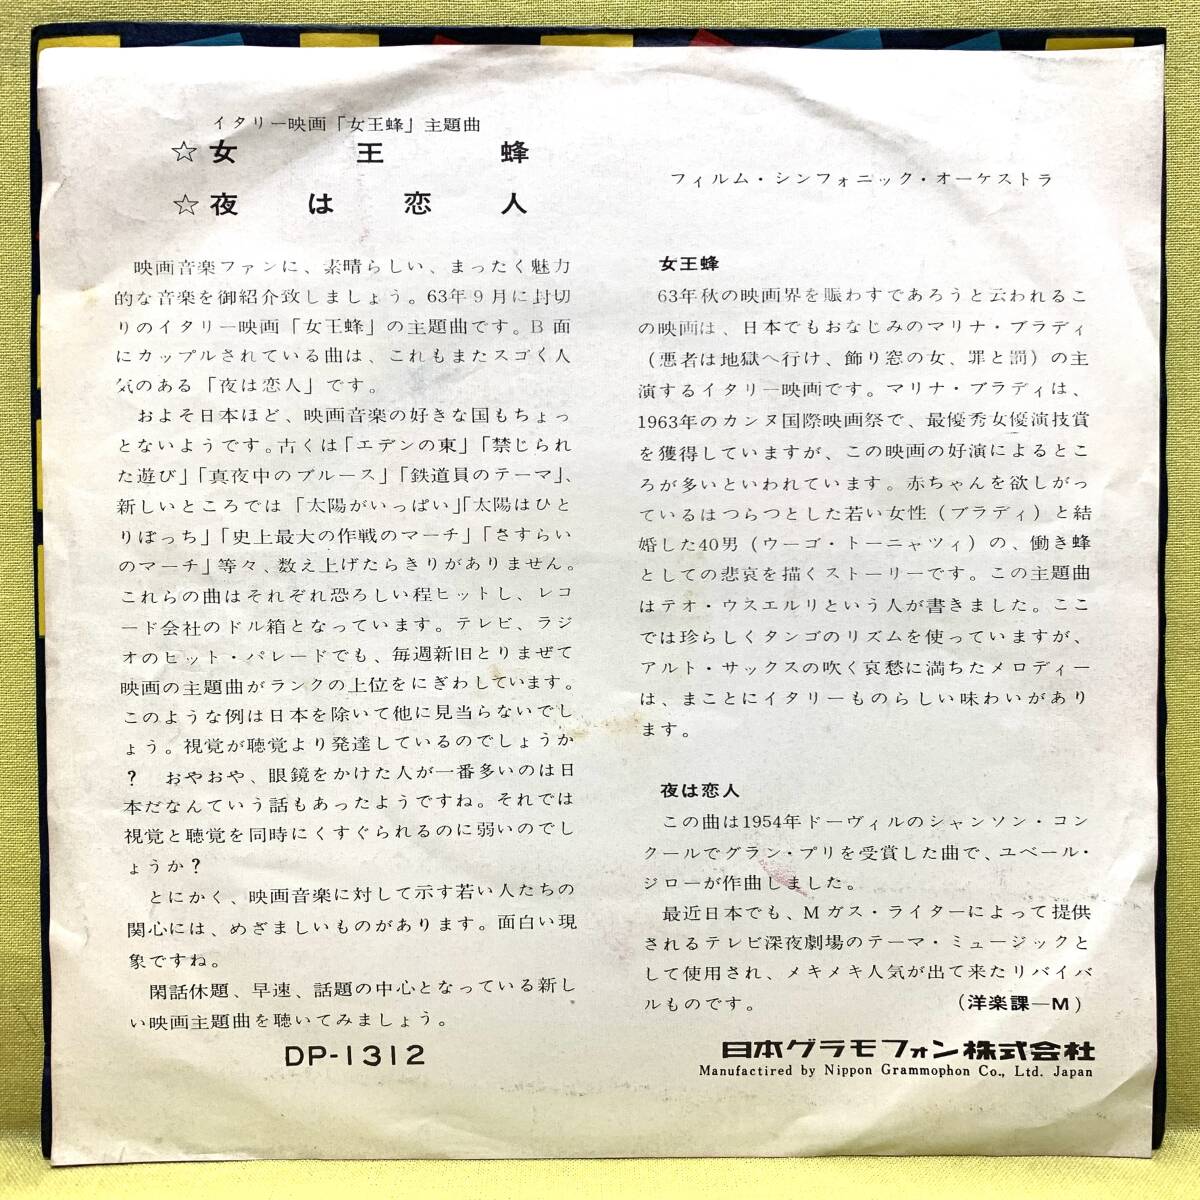 イタリー映画「女王蜂」主題曲
☆女王蜂
☆夜は恋人
フィルム・シンフォニック・オーケストラ
映画音楽ファンに、素晴らしい、まったく魅力
的な音楽を御紹介致しましょう。63年9月に封切
りのイタリー映画「女王蜂」の主題曲です。B面
にカップルされている曲は、これもまたスゴく人
気のある「夜は恋人」です。
およそ日本ほど、映画音楽の好きな国もちょっ
とないようです。古くは「エデンの東」「禁じられ
た遊び」「真夜中のブルース」「鉄道員のテーマ」、
新しいところでは「太陽がいっぱい」「太陽はひと
りぼっち」「史上最大の作戦のマーチ」「さすらい
のマーチ」等々、数え上げたらきりがありません。
これらの曲はそれぞれ恐ろしい程ヒットし、レコ
ード会社のドル箱となっています。テレビ、ラジ
オのヒット・パレードでも、毎週新旧とりまぜて
映画の主題曲がランクの上位をにぎわしています。
このような例は日本を除いて他に見当らないでし
ょう。視覚が聴覚より発達しているのでしょうか
？　おやおや、眼鏡をかけた人が一番多いのは日
本だなんていう話もあったようですね。それでは
視覚と聴覚を同時にくすぐられるのに弱いのでし
ょうか？
とにかく、映画音楽に対して示す若い人たちの
関心には、めざましいものがあります。面白い現
象ですね。
閑話休題、早速、話題の中心となっている新し
い映画主題曲を聴いてみましょう。
DP-1312
女王蜂
63年秋の映画界を賑わすであろうと云われるこ
の映画は、日本でもおなじみのマリナ・ブラディ
（悪者は地獄へ行け、飾り窓の女、罪と罰）の主
演するイタリー映画です。マリナ・ブラディは、
1963年のカンヌ国際映画祭で、最優秀女優演技賞
を獲得していますが、この映画の好演によるとこ
ろが多いといわれています。赤ちゃんを欲しがっ
ているはつらつとした若い女性（ブラディ）と結
婚した40男（ウーゴ・トーニャツィ）の、働き蜂
としての悲哀を描くストーリーです。この主題曲
はテオ・ウスエルリという人が書きました。ここ
では珍らしくタンゴのリズムを使っていますが、
アルト・サックスの吹く哀愁に満ちたメロディー
は、まことにイタリーものらしい味わいがあり
ます。
夜は恋人
この曲は1954年ドーヴィルのシャンソン・コン
クールでグラン・プリを受賞した曲で、ユベール・
ジローが作曲しました。
最近日本でも、Mガス・ライターによって提供
されるテレビ深夜劇場のテーマ・ミュージックと
して使用され、メキメキ人気が出て来たリバイバ
ルものです。　（洋楽課―M）
日本グラモフォン株式会社
Manufactired by Nippon Grammophon Co., Ltd. Japan